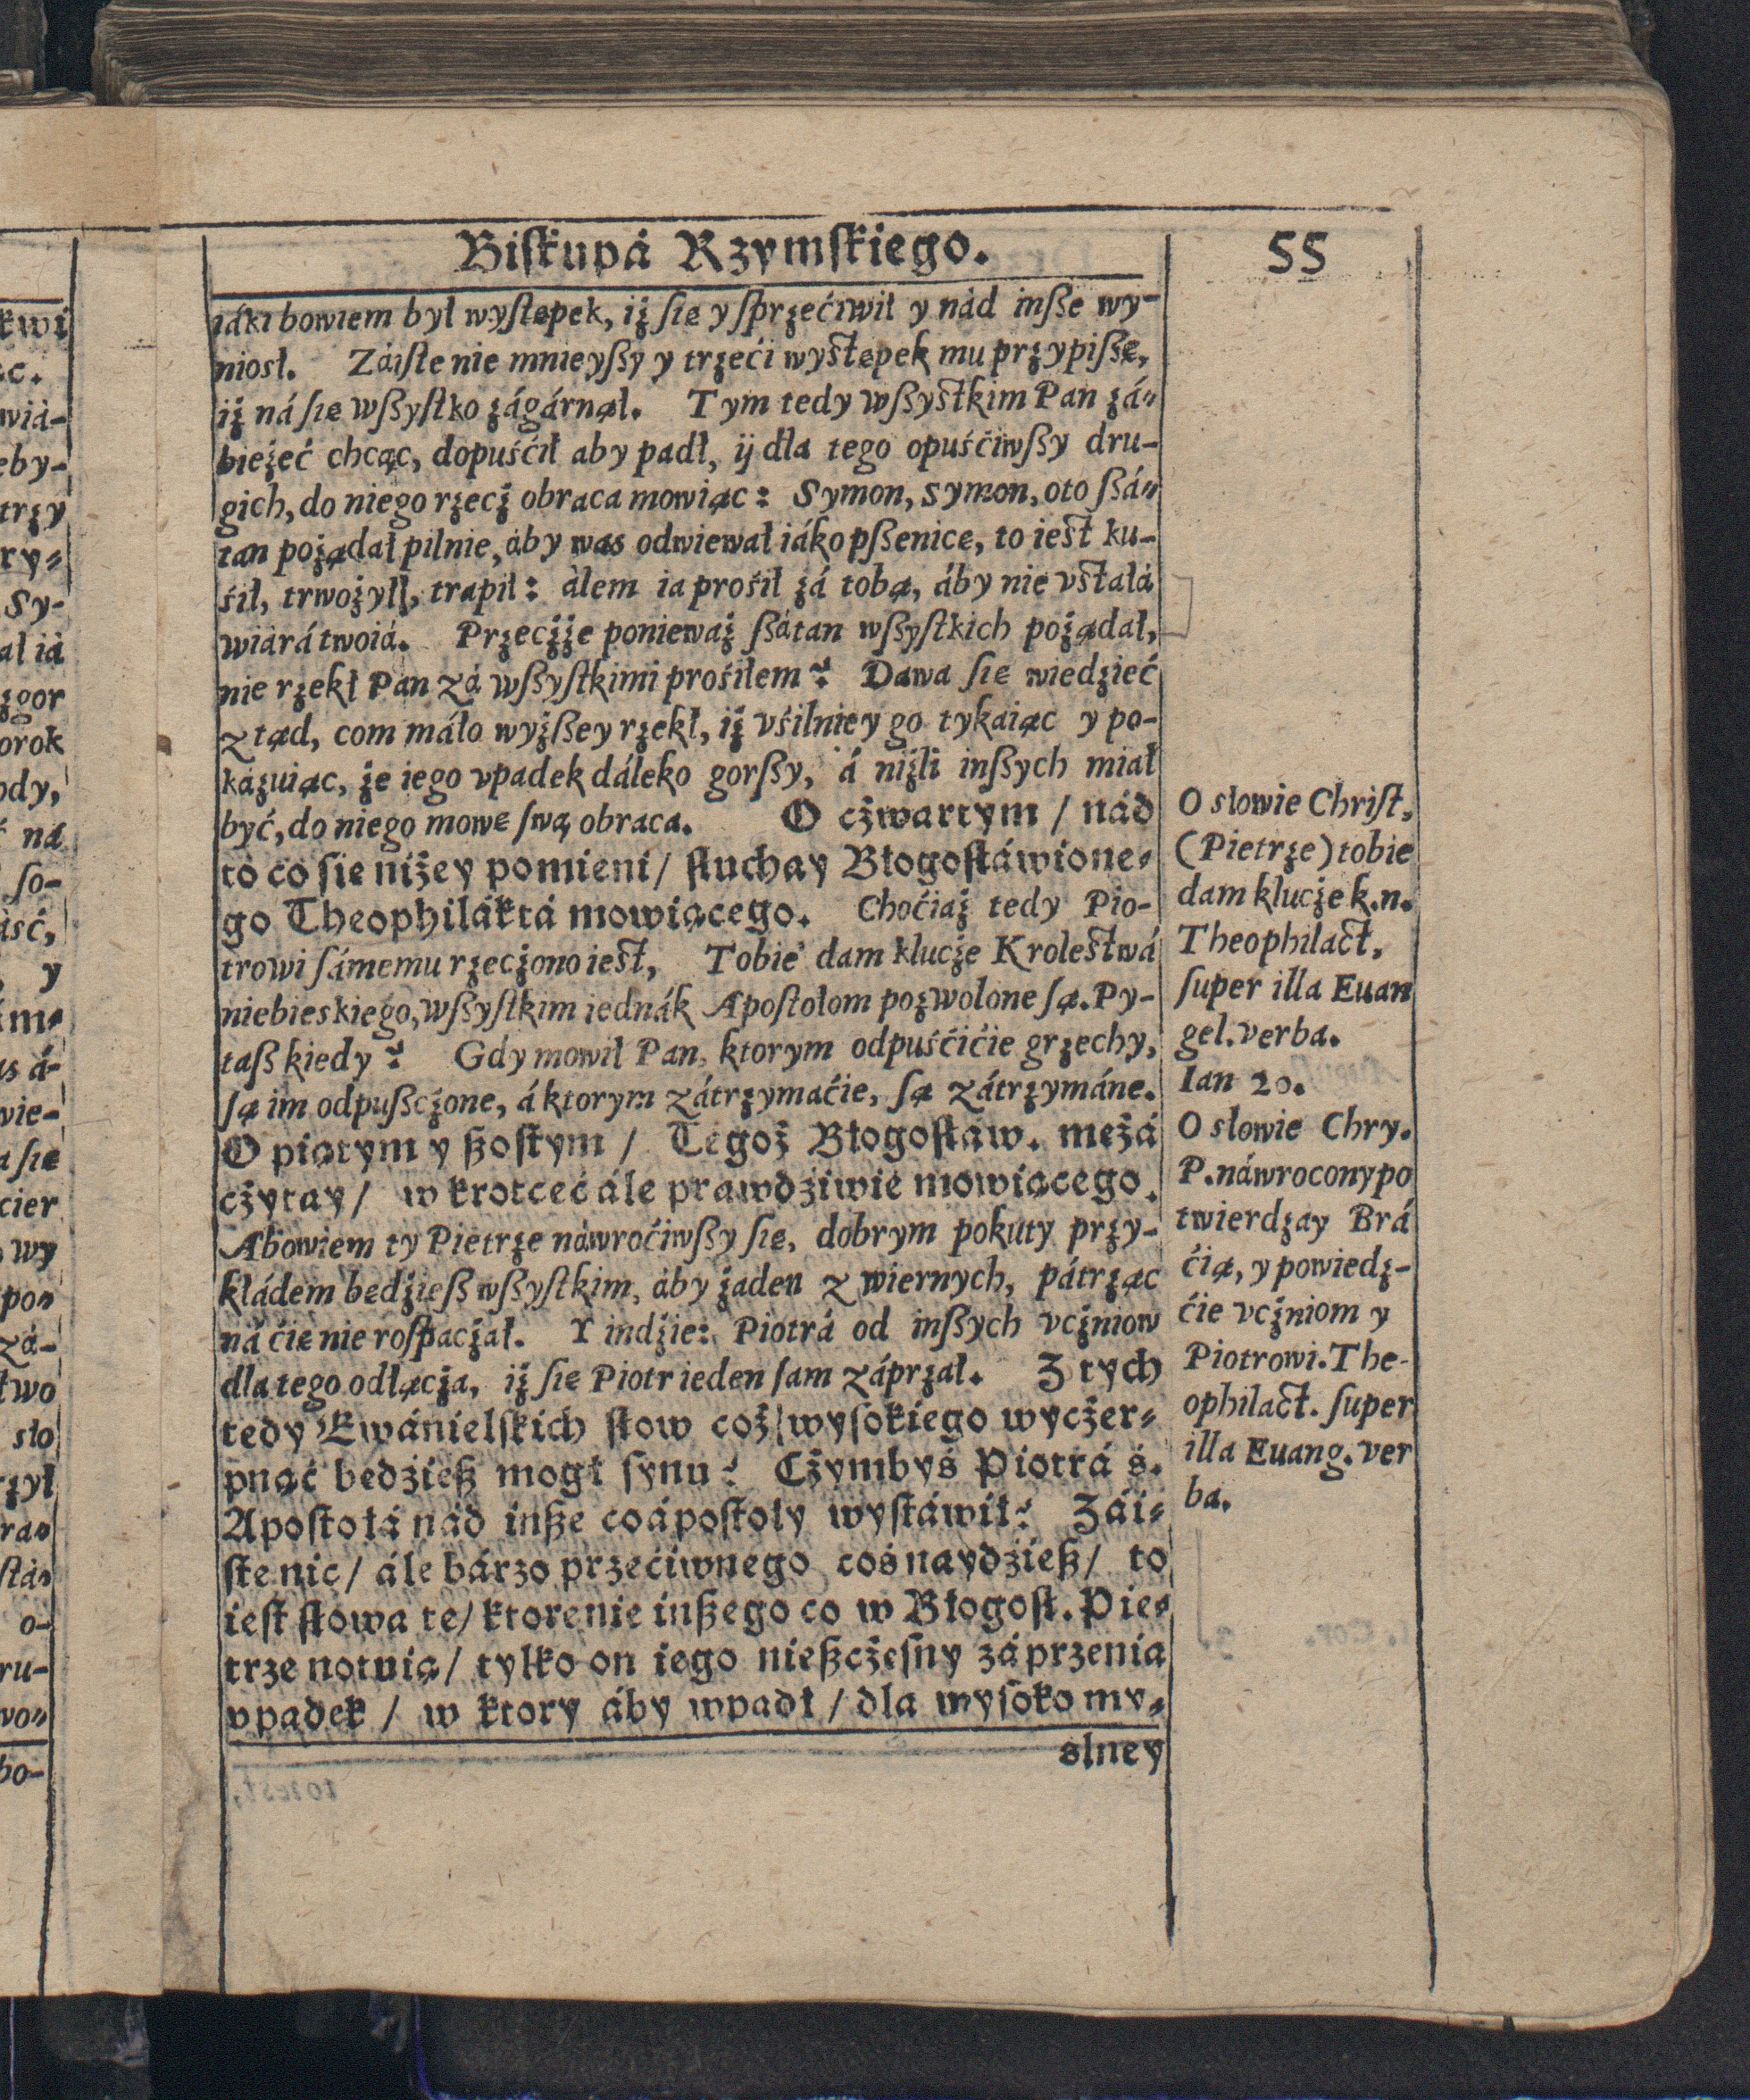 Biſkupá Rzymſkiego.
55
iáki bowiem był wyſtępek, iż ſię y ſprzećiwił y nád inſße wy-
niosł. Záiſte nie mnieyſßy y trzeći wyſtępek mu przypiſßę,
iż ná ſię wſßyſtko zágárnął. Tym tedy wſßyſtkim Pan zá-
bieżeć chcąc, dopuśćił aby padł, ij dla tego opuśćiwſßy dru-
gich, do niego rzecż obraca mowiąc: Symon, Symon, oto ſßá-
tan pożądał pilnie, áby was odwiewał iáko pſßenicę, to ieſt ku-
śił, trwożył, trapił: álem ia prośił zá tobą, áby nie vſtałá
wiárá twoiá. Przecżże ponieważ ſßátan wſßyſtkich pożądał,
nie rzekł Pan zá wſßyſtkimi prośiłem? Dawa ſię wiedzieć
z tąd, com máło wyżſßey rzekł, iż vśilniey go tykaiąc y po-
kázuiąc, że iego vpadek dáleko gorſßy, á niżli inſßych miał
być, do niego mowę ſwą obraca. O cżwartym / nád
to co ſie niżey pomieni / ſłuchay Błogoſłáwione-
go Theophiláktá mowiącego. Choćiaż tedy Pio-
trowi ſámemu rzecżono ieſt, Tobie dam klucże Kroleſtwá
niebieskiego, wſßyſtkim iednák Apoſtołom pozwolone ſą. Py-
taſß kiedy? Gdy mowił Pan, ktorym odpuśćićie grzechy,
ſą im odpuſßcżone, á ktorym zátrzymaćie, ſą zátrzymáne.
O piątym y ßoſtym / Tegoż Błogoſłáw. mężá
cżytay / w krotceć ále prawdźiwie mowiącego.
Abowiem ty Pietrze náwroćiwſßy ſię, dobrym pokuty przy-
kłádem będżieſß wſßyſtkim, áby żaden z wiernych, pátrząc
ná ćię nie roſpacżał. Y indżie: Piotrá od inſßych vcżniow
dla tego odłącża, iż ſię Piotr ieden ſam záprzał. Z tych
tedy Ewánielſkich ſłow coż wyſokiego wycżer-
pnąć bedzieß mogł ſynu? Cżymbyś Piotrá ś.
Apoſtołá nád inße coápoſtoły wyſtáwił? Zái-
ſte nic / ále bárzo przećiwnego coś naydzieß / to
ieſt ſłowa te / ktore nie inßego co w Błogoſł. Pie-
trze notuią / tylko on iego nießcżeſny záprzenia
vpadek / w ktory áby wpadł / dla wyſoko my-
slney
O słowie Chriſt.
(Pietrze) tobie
dam klucże k.n.
Theophilact.
ſuper illa Euan
gel. verba.
Ian 20.
O słowie Chry.
P. náwrocony po
twierdzay Brá
ćią, y powiedz-
ćie vcżniom y
Piotrowi. The-
ophilact. ſuper
illa Euang. ver
ba.